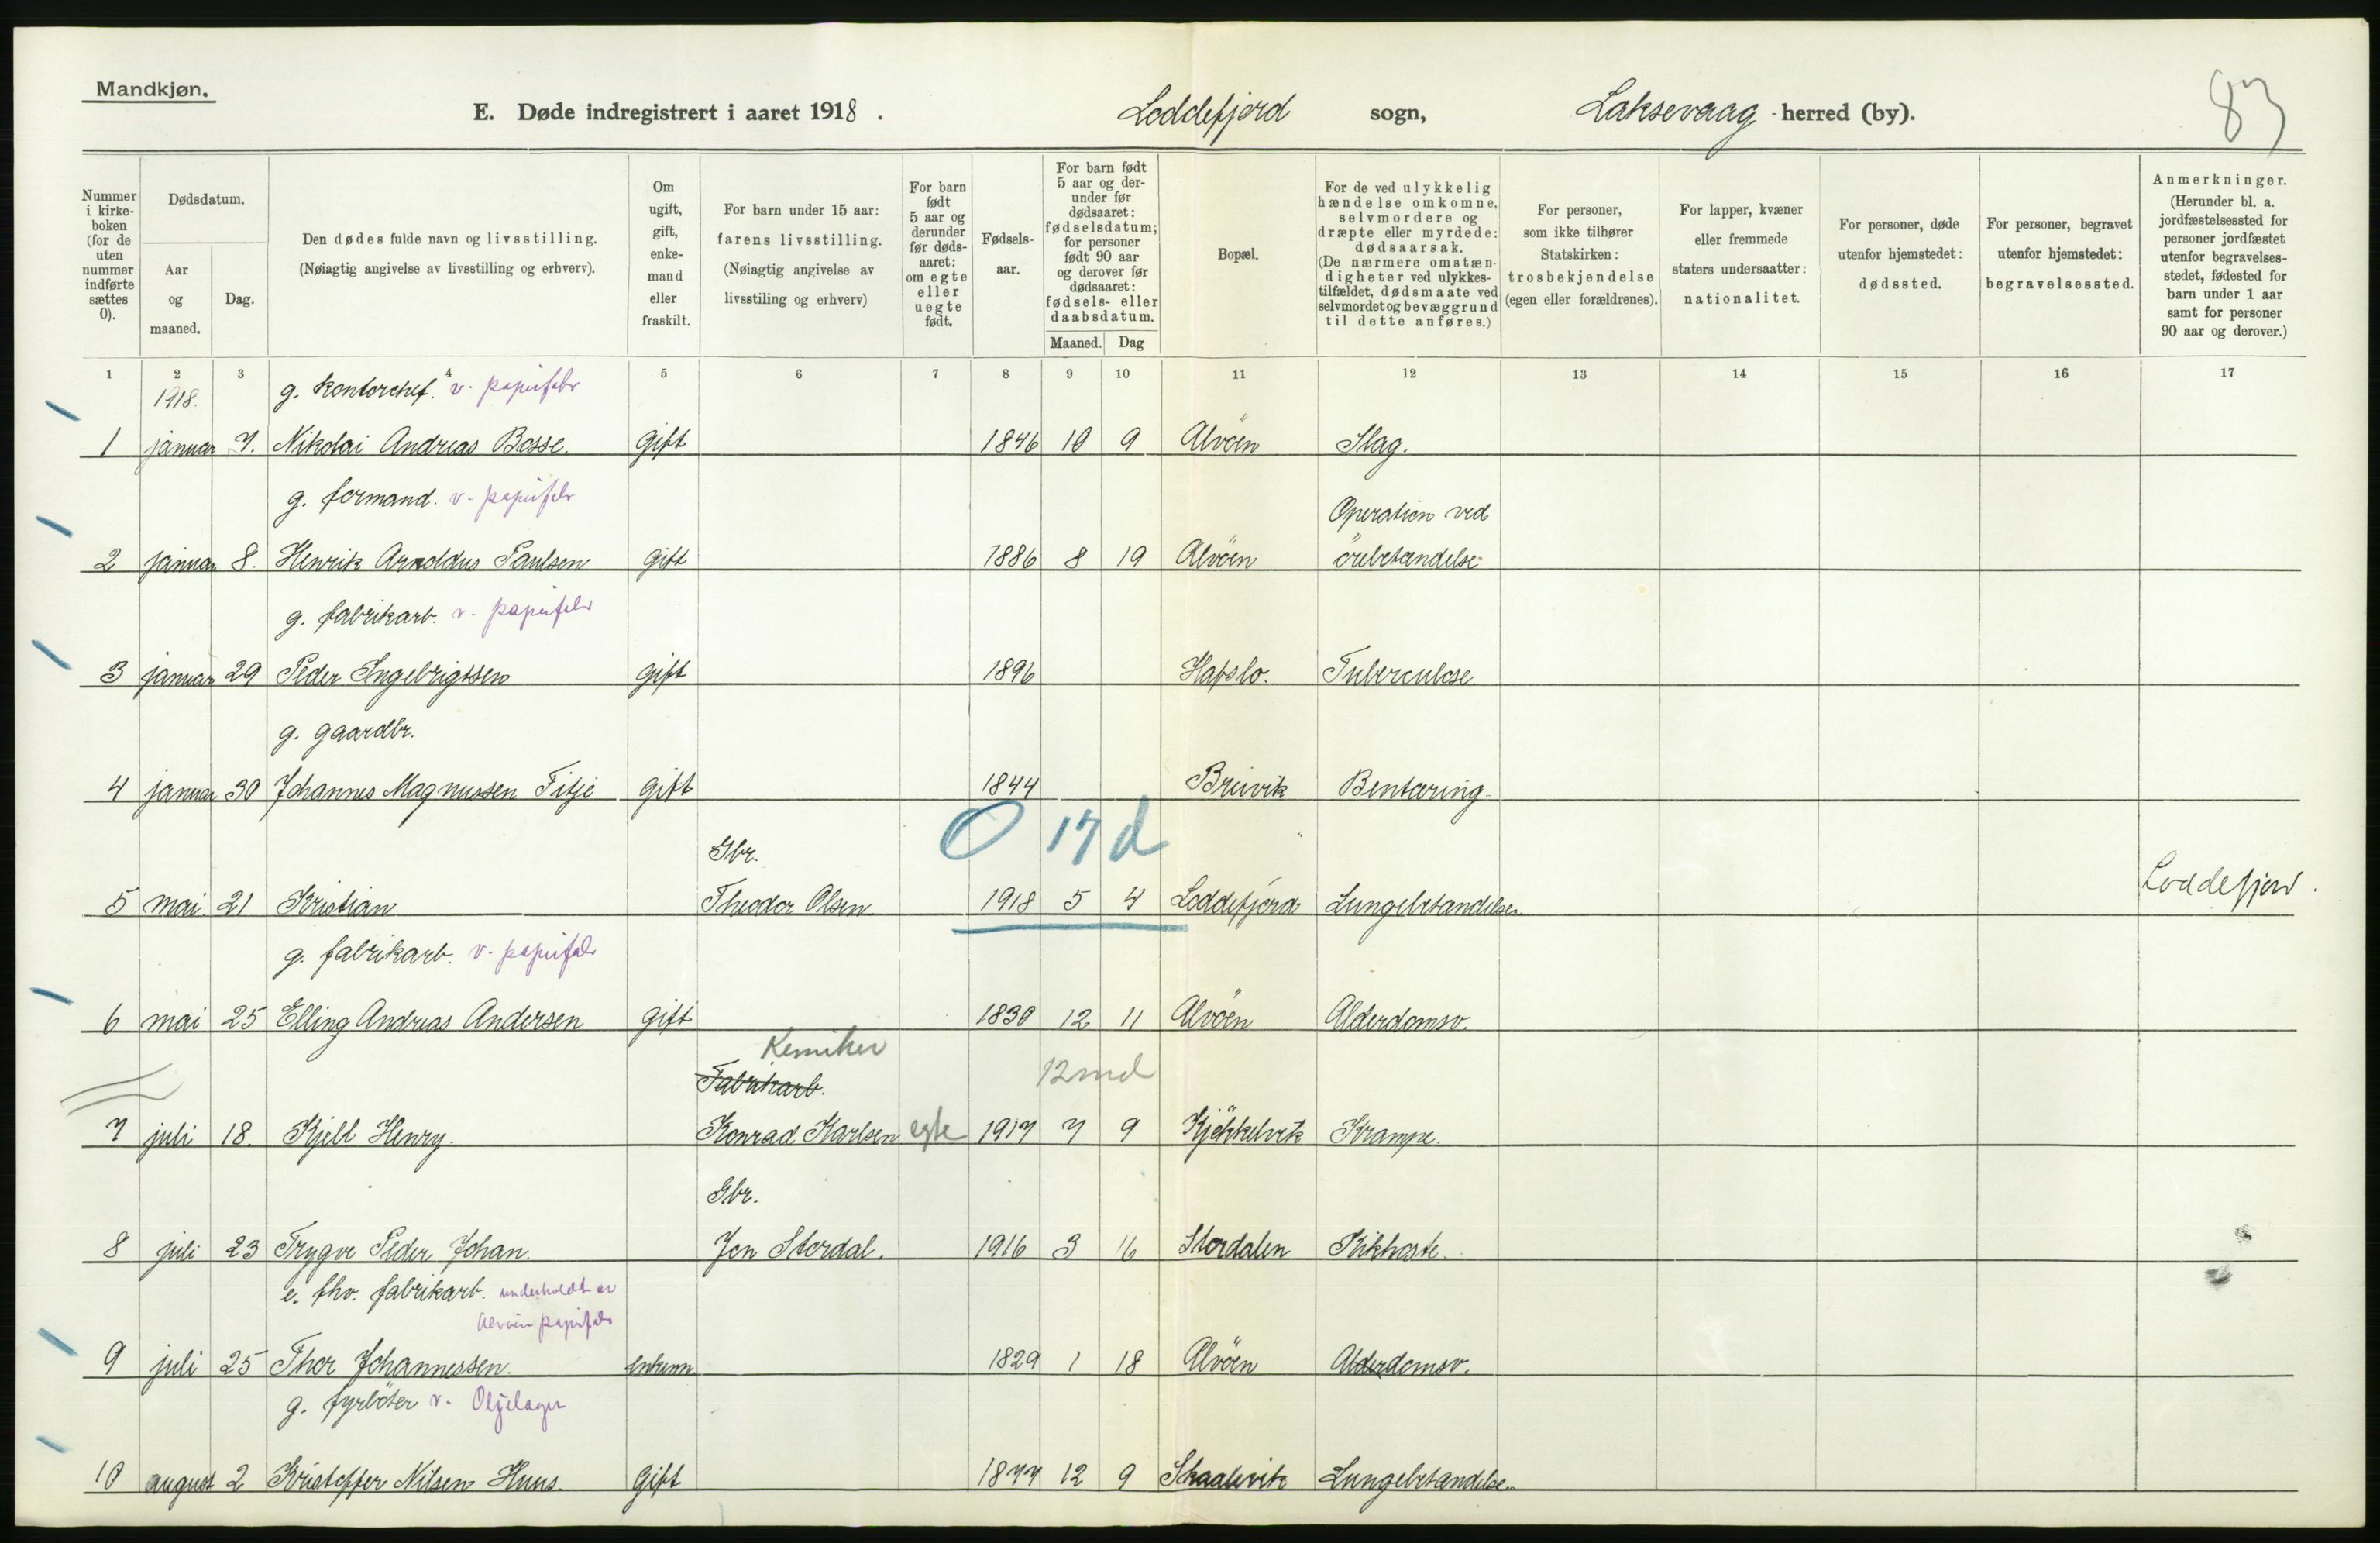 Mandkjøn.
E. Døde indregistrert i aaret 1918. Loddefjord sogn, Laksevaag herred (by).
83
Nummer i kirkeboken (for de uten nummer indførte sættes 0).
Dødsdatum.
Aar og maaned.
Dag.
Den dødes fulde navn og livsstilling. (Nøiagtig angivelse av livsstilling og erhverv).
Om ugift, gift, enkemand eller fraskilt.
For barn under 15 aar: farens livsstilling. (Nøiagtig angivelse av livsstiling og erhverv)
For barn født 5 aar og derunder før dødsaaret: om egte eller uegte født.
Fødselsaar.
For barn født 5 aar og derunder før dødsaaret: fødselsdatum; for personer født 90 aar og derover før dødsaaret: fødsels- eller daabsdatum.
Maaned. Dag
Bopæl.
For de ved ulykkelig hændelse omkomne, selvmordere og dræpte eller myrdede: dødsaarsak. (De nærmere omstændigheter ved ulykkestilfældet, dødsmaate ved selvmordet og bevæggrund til dette anføres.)
For personer, som ikke tilhører Statskirken: trosbekjendelse (egen eller forældrenes).
For lapper, kvæner eller fremmede staters undersaatter: nationalitet.
For personer, døde utenfor hjemstedet: dødssted.
For personer, begravet utenfor hjemstedet: begravelsessted.
Anmerkninger. (Herunder bl. a. jordfæstelsessted for personer jordfæstet utenfor begravelsesstedet, fødested for barn under 1 aar samt for personer 90 aar og derover.)
1 2 3 4 5 6 7 8 9 10 11 12 13 14 15 16 17
1918. g. kontorchef. v. papirfabr
1 januar 7. Nikolai Andreas Bosse. Gift 1846 10 9 Alvöen Slag.
g. formand. v. papirfabr Operation ved
2 januar 8. Henrik Arnoldus Paulsen gift 1886 8 19 Alvöen örebetændelse
g. fabrikarb. v. papirfabr
3 januar 29 Peder Ingebrigtsen gift 1896 Hafslo. Tuberculose
g. gaardbr.
4 januar 30 Johannes Magnussen Fitje gift 1844 Breivik Bentæring
Gbr. 0 17 d
5 mai 21 Kristian Theodor Olsen 1918 5 4 Loddefjord Lungebetændelse. Loddefjord.
g. fabrikarb. v. papirfab
6 mai 25 Elling Andreas Andersen gift 1830 12 11 Alvöen Alderdomsv.
Kemiker
Fabrikarb. 12 md
7 juli 18. Kjell Henry. Konrad Karlsen egte 1917 7 9 Kjökkelvik Krampe.
Gbr.
8 juli 23 Trygve Peder Johan. Jon Stordal. 1916 3 16 Stordalen Kikhoste.
e. fhv. fabrikarb. underholdt av
Alvöen papirfab
9 juli 25 Thor Johannessen. enkem. 1829 1 18 Alvöen Alderdomsv.
g. fyrböter v. Oljelager
10 august 2 Kristoffer Nilsen Huus. Gift 1877 12 9 Skaalevik Lungebetændelse.